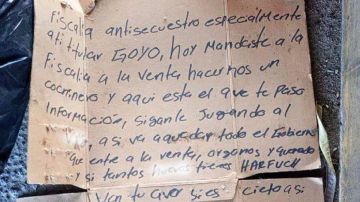 Fiscalia antisecuestro especialmente
al titular GOYO, hoy Mandaste a la
Fiscalia a la venta hacernos un
cochinero y aqui esta el que te Paso
Información, siganle Jugando al
a si va aquedar todo el Gobierno
que entre a la venta, organos y
y si tantos huevos tienes HARFUCH
Ven tu aver si es cieto asi